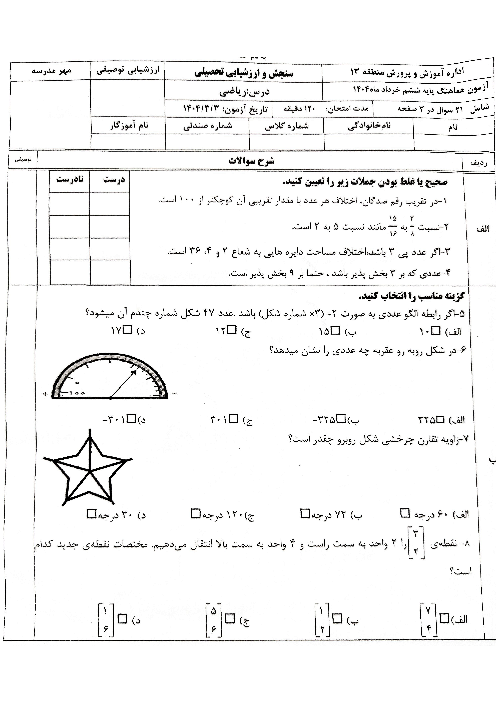 اداره آموزش و پرورش منطقه ۱۳
سنجش و ارزشیابی تحصیلی
ارزشیابی توصیفی
مهر مدرسه
آزمون هماهنگ پایه ششم خرداد ماه ۱۴۰۴
درس: ریاضی
شامل ۲۱ سوال در ۳ صفحه
مدت امتحان: ۱۲۰ دقیقه
تاریخ آزمون: ۱۴۰۴/۳/۳
نام
نام خانوادگی
شماره کلاس
شماره صندلی
نام آموزگار
ردیف
شرح سوالات
الف
صحیح یا غلط بودن جملات زیر را تعیین کنید.
درست
نادرست
۱-در تقریب رقم صدگان، اختلاف هر عدد با مقدار تقریبی آن کوچکتر از ۱۰۰ است.
۲-نسبت ۲/۸ به ۱۵/۱۶ مانند نسبت ۵ به ۲ است.
۳-اگر عدد پی ۳ باشد،اختلاف مساحت دایره هایی به شعاع ۲ و ۴، ۳۶ است.
۴. عددی که بر ۳ بخش پذیر باشد ، حتما بر ۹ بخش پذیر است.
ب
گزینه مناسب را انتخاب کنید.
۵-اگر رابطه الگو عددی به صورت ۲- (۳× شماره شکل) باشد .عدد ۴۷ شکل شماره چندم آن میشود؟
الف) ۱۰ ب) ۱۵ ج) ۱۲ د) ۱۷
۶-در شکل روبه رو عقربه چه عددی را نشان میدهد؟
-۱۰۰
الف) ۳۲۵ ب) ۳۲۵- ج) ۳۰۱ د) ۳۰۱-
۷-زاویه تقارن چرخشی شکل روبرو چقدر است؟
الف) ۶۰ درجه ب) ۷۲ درجه ج) ۱۲۰ درجه د) ۳۰ درجه
۸- نقطه‌ی [۳ ۲] را ۲ واحد به سمت راست و ۴ واحد به سمت بالا انتقال می‌دهیم. مختصات نقطه‌ی جدید کدام
است؟
الف) [۷ ۴] ب) [۱ ۲] ج) [۵ ۶] د) [۱ ۶]